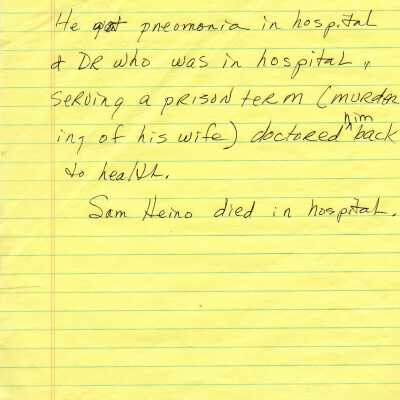 He got pneomonia in hospital
& DR who was in hospital,
serving a prison term (murder
ing of his wife) doctored him back
to health.
Sam Heino died in hospital.